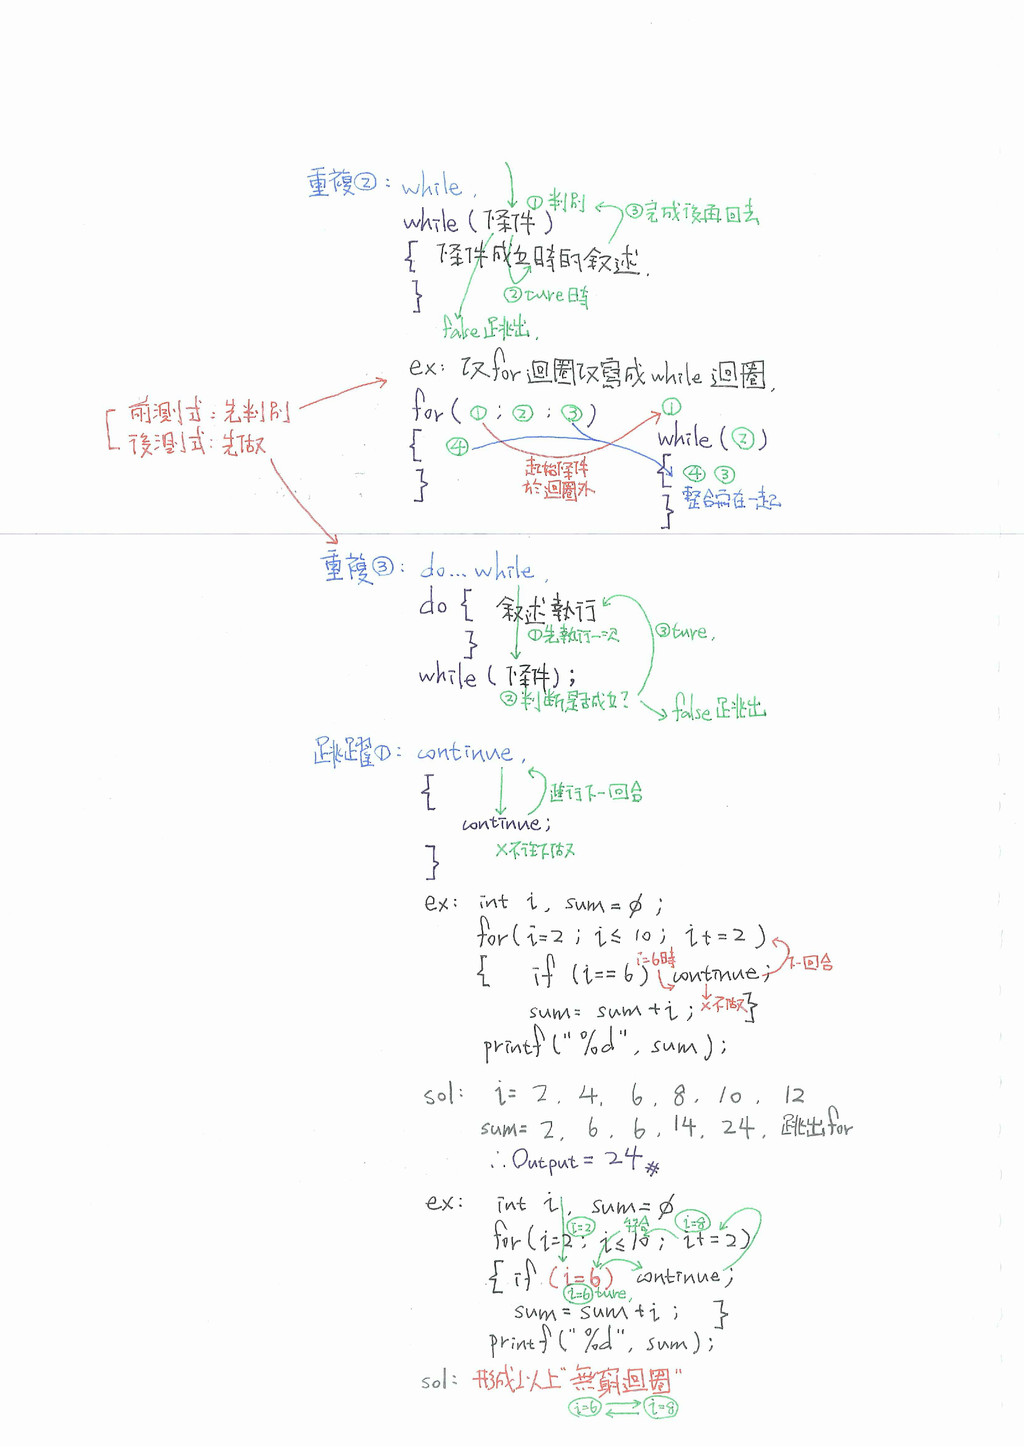 重複②: while.
while (條件) ①判別 ③完成後再回去
{ 條件成立時的敘述.
} ②ture時
false跳出.
ex: 改for迴圈改寫成while迴圈.
前測式:先判別
後測式:先做
for( ① ; ② ; ③ ) ①
while (②)
{ ④
{ ④ ③
起始條件
於迴圈外
整合寫在一起
}
}
重複③: do...while.
do { 敘述執行
①先執行一次 ③ture.
}
while (條件);
②判斷是否成立?
false跳出
跳躍①: continue.
{ 進行下一回合
continue;
×不往下做
}
ex: int i, sum=∅;
for(i=2; i≤10; i+=2)
{ if (i==6) i=6時 continue; 下一回合
sum= sum+i; ×不做 }
printf("%d", sum);
sol: i= 2, 4, 6, 8, 10, 12
sum= 2, 6, 6, 14, 24, 跳出for
∴Output = 24#
ex: int i, sum=∅
i=2 符合 i=8
for(i=2; i≤10; i+=2)
{ if (i=6) continue;
i=6 ture,
sum=sum+i; }
printf("%d", sum);
sol: 形成以上"無窮迴圈"
i=6 i=8